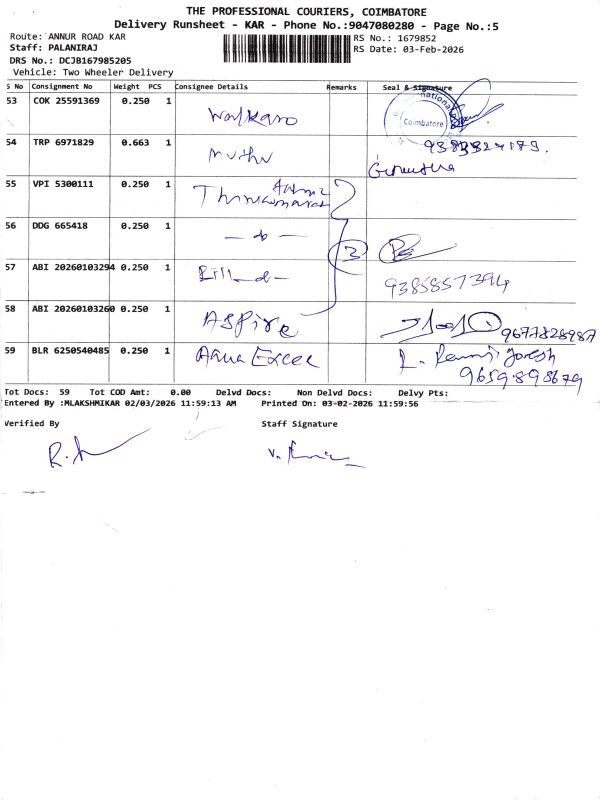 THE PROFESSIONAL COURIERS, COIMBATORE
Delivery Runsheet - KAR - Phone No.:9047080280 - Page No.:5
Route: ANNUR ROAD KAR
RS No.: 1679852
Staff: PALANIRAJ
RS Date: 03-Feb-2026
DRS No.: DCJB167985205
Vehicle: Two Wheeler Delivery
S No Consignment No Weight PCS Consignee Details Remarks Seal & Signature
53 COK 25591369 0.250 1 Walkaro
Coimbatore
54 TRP 6971829 0.663 1 Muthu
55 VPI 5300111 0.250 1
56 DDG 665418 0.250 1 - do -
3
57 ABI 20260103294 0.250 1 Bill - do -
9385857394
58 ABI 20260103260 0.250 1 ASPire
9677828987
59 BLR 6250540485 0.250 1 Aqua Excel
9659898679
Tot Docs: 59 Tot COD Amt: 0.00 Delvd Docs: Non Delvd Docs: Delvy Pts:
Entered By :MLAKSHMIKAR 02/03/2026 11:59:13 AM Printed On: 03-02-2026 11:59:56
Verified By Staff Signature